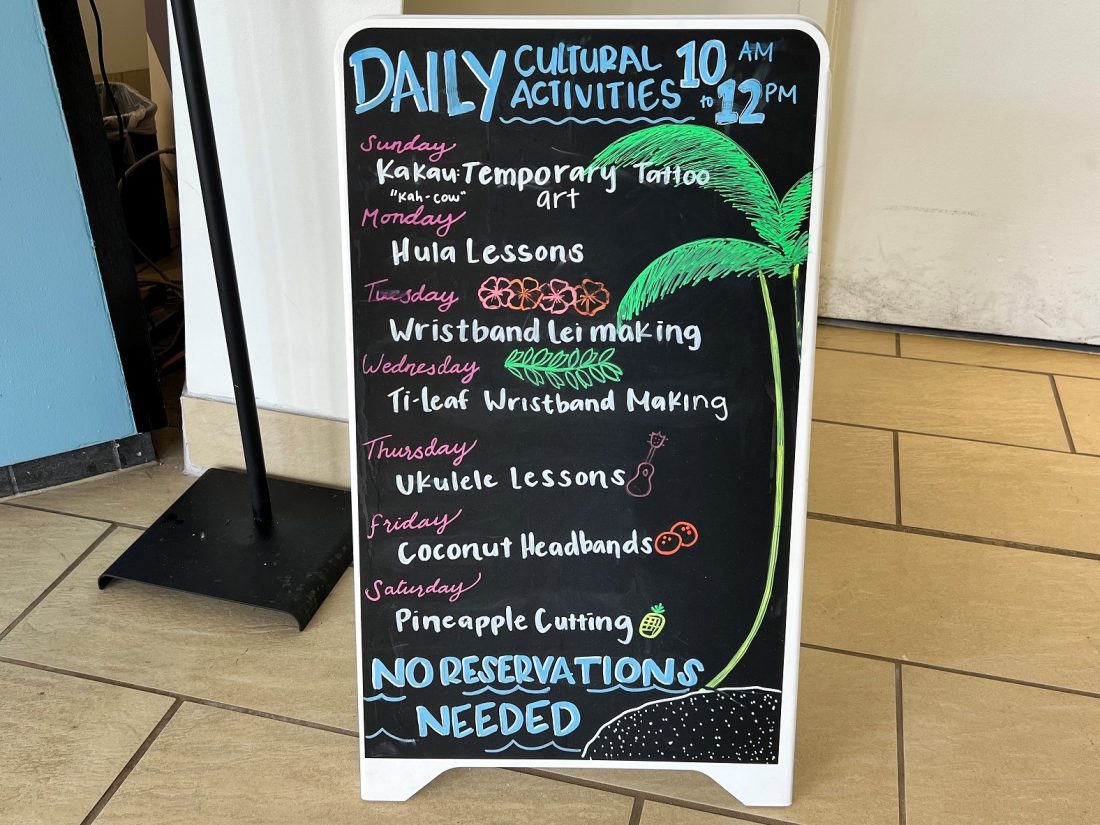 DAILY CULTURAL ACTIVITIES 10 AM to 12 PM
Sunday
Kakau: Temporary Tattoo
"Kah-cow" art
Monday
Hula Lessons
Tuesday
Wristband Lei making
Wednesday
Ti-Leaf Wristband Making
Thursday
Ukulele Lessons
Friday
Coconut Headbands
Saturday
Pineapple Cutting
NO RESERVATIONS
NEEDED